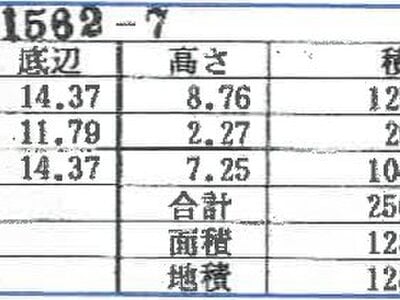 1562-7
底辺 高さ 積
14.37 8.76 12
11.79 2.27 2
14.37 7.25 10
合計 25
面積 12
地積 12